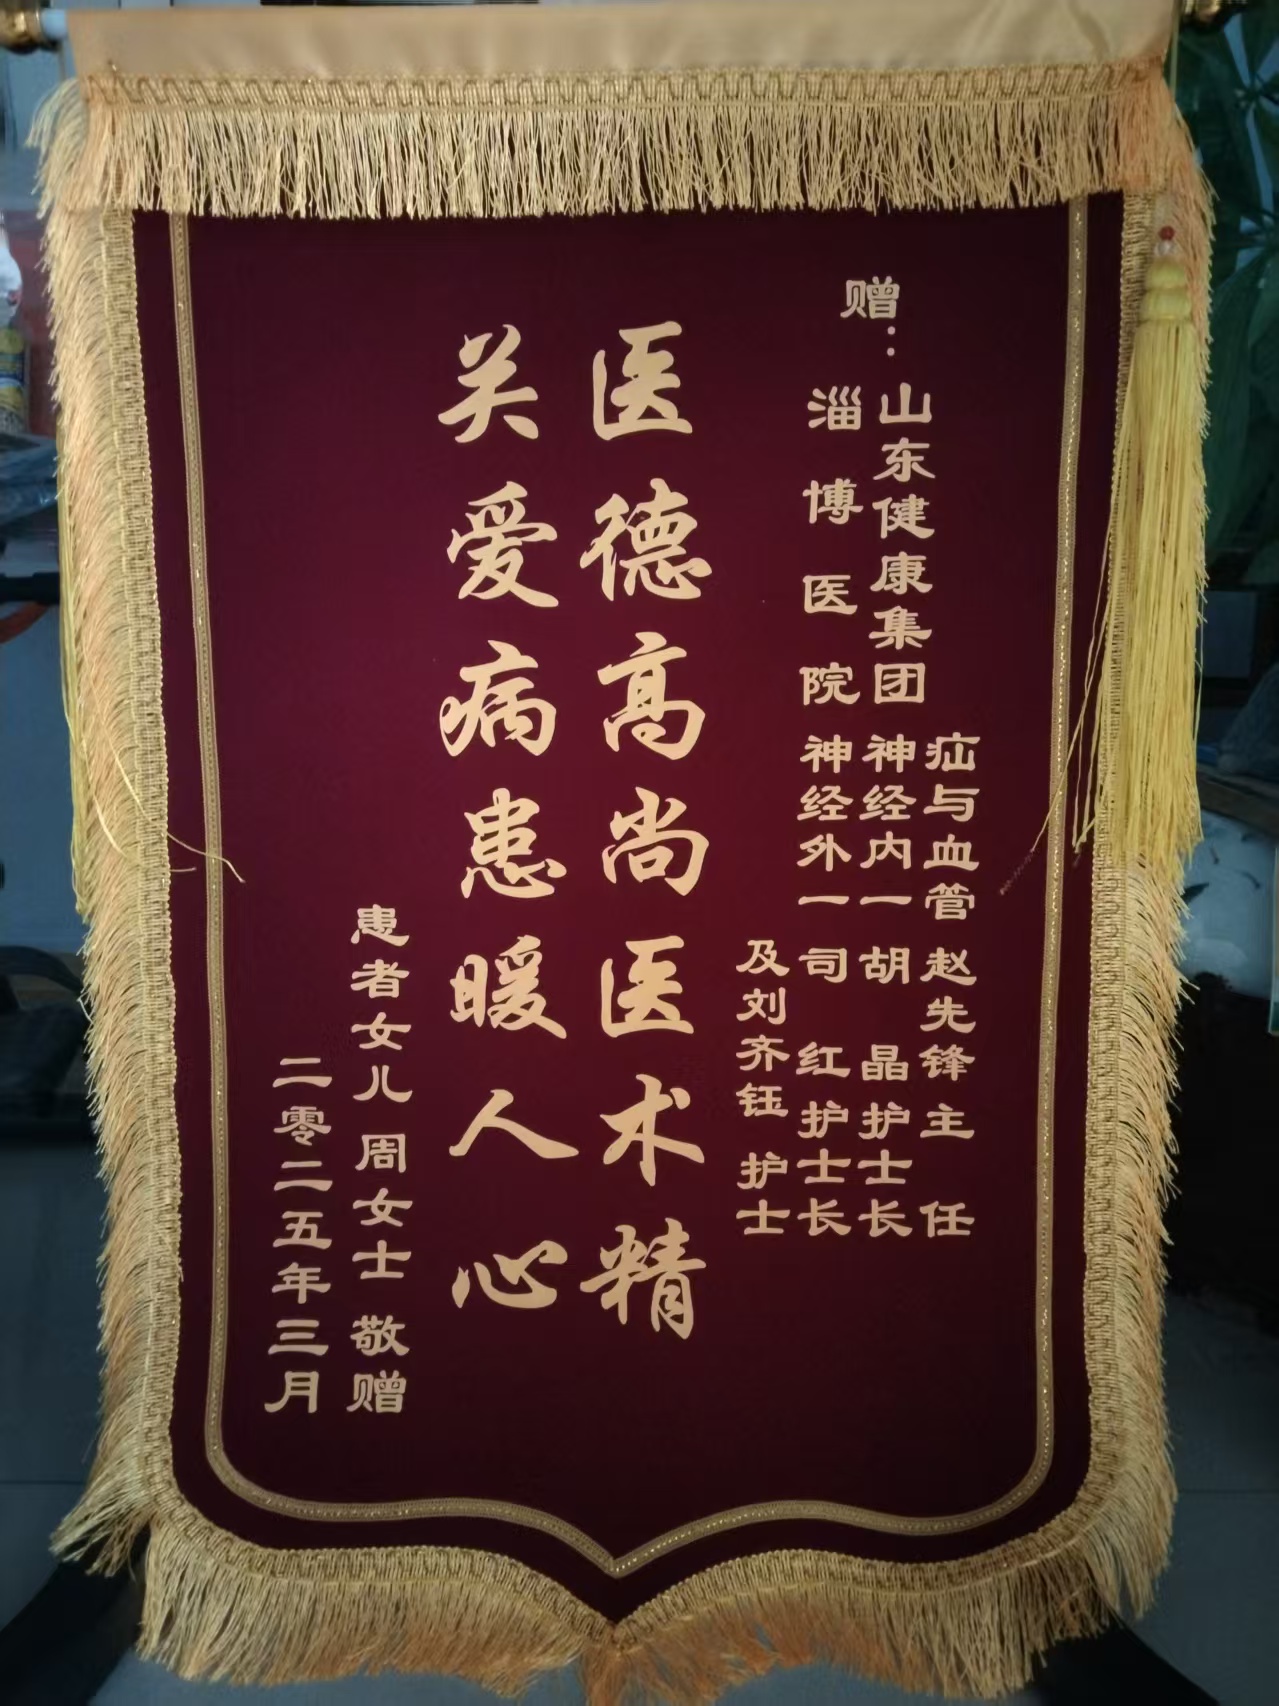 赠：
山东健康集团
淄博医院
疝与血管 赵先锋 主任
神经内一 胡晶 护士长
神经外一 司红 护士长
及刘齐钰 护士
医德高尚医术精
关爱病患暖人心
患者女儿 周女士 敬赠
二零二五年三月